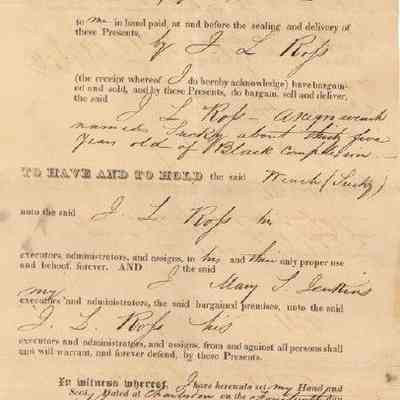 to me in hand paid, at and before the sealing and delivery of
these Presents,
by J L Ross
(the receipt whereof I do hereby acknowledge) have bargain-
ed and sold, and by these Presents, do bargain, sell and deliver,
the said
J L Ross – a negro wench
named Sucky about thirty five
years old of Black complexion –
TO HAVE AND TO HOLD the said Wench (Sucky)
unto the said J. L. Ross his
executors, administrators, and assigns, to his and their only proper use
and behoof, forever. AND I the said
Mary S. Jenkins
my
executors and administrators, the said bargained premises, unto the said
J. L. Ross his
executors and administrators, and assigns, from and against all persons shall
and will warrant, and forever defend, by these Presents.
In witness whereof, I have hereunto set my Hand and
Seal Dated at Charleston on the